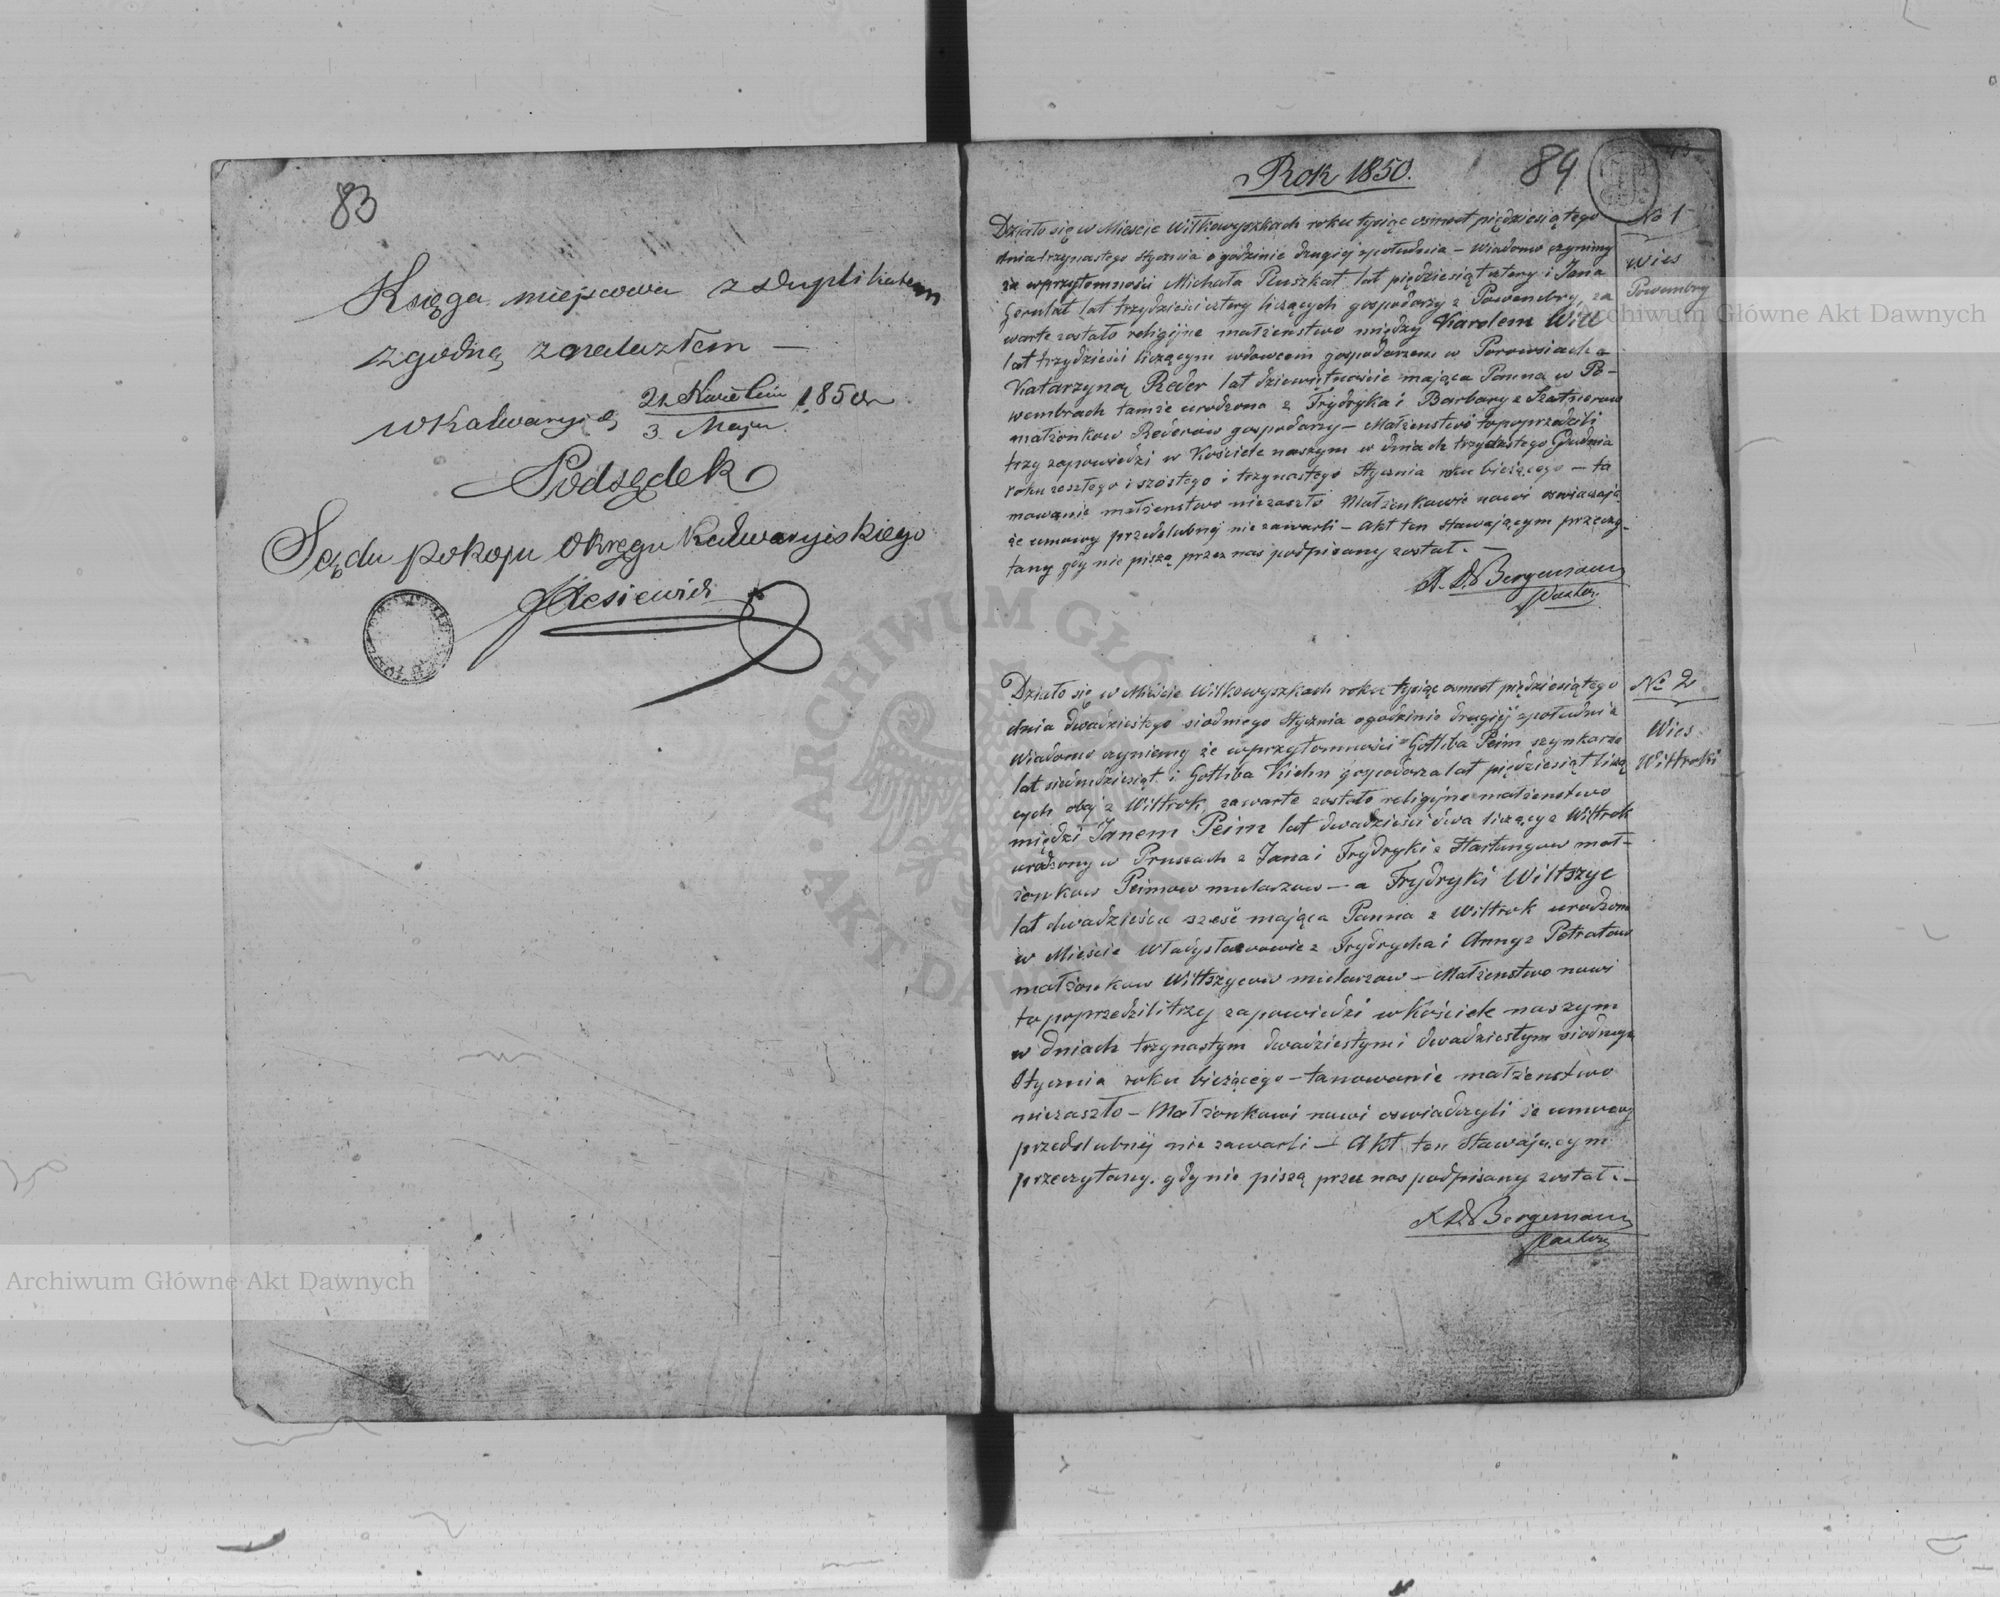 83
Księga miejscowa z duplikatem
zgodną znalazłem —
w Kalwaryi d. 21 Kwietnia / 3 Maja 1850 r.
Podsędek
Sądu pokoju Okręgu Kalwaryiskiego
Rok 1850.
84
No 1
Wies
Powembry
Działo się w Miescie Wiłkowyszkach roku tysiąc osmset piędziesiątego
dnia trzynastego stycznia o godzinie drugiéj zpołudnia — Wiadomo czynimy
że w przytomności Michała Pluszkat lat pięździesiąt cztery i Jana
Gerulat lat trzydzieści cztery liczących gospodarzy z Powembry, za
warte zostało religijne małżenstwo między Karolem Will
lat trzydzieści liczącym wdowcem gospodarzem w Porowsiach a
Katarzyną Reder lat dziewiętnaście mająca Panna w Po-
wembrach tamże urodzona z Frydryka i Barbary z Szatnerow
małżonkow Rederow gospodarzy — Małżenstwo to poprzedzili
trzy zapowiedzi w Kościele naszym w dniach trzydzstego Grudnia
roku zeszłego i szóstego i trzynastego Stycznia roku bieżącego — ta
mowanie małżenstwo niezaszło Małżonkowie nowi oswiaczają
że umowy przedslubnéj nie zawarli — Akt ten stawającym przeczy-
tany gdy nie piszą przez nas podpisany został. —
Bergemann
Pastor
No 2
Wies
Wiłtroki
Działo się w Mieście Wiłkowyszkach roku tysiąc osmset pięździesiątego
dnia dwadziestego siodmego Stycznia o godzinie drugiéj zpołudnia
Wiadomo czyniemy że w przytomności Gottliba Peim szynkarza
lat siedmdziesiąt i Gottliba Kiehn gospodarza lat pięździesiąt liczą
cych obaj z Wiłtrok, zawarte zostało religijne małżenstwo
między Janem Peim lat dwadzieści dwa liczący z Wiłtrok
urodzony w Prusach z Jana i Frydryki z Hartungow mał-
żonkow Peimow mularzow — a Frydryki Wiltszyc
lat dwadzieścia sześć mająca Panna z Wiłtrok urodzona
w Mieście Władysławowie z Frydrycha i Anny z Petratow
małżonkow Wiltszycow mularzow — Małżenstwo nowi
to poprzedzili trzy zapowiedzi w Kościele naszym
w dniach trzynastym dwadziestym i dwadziestym siodmego
Stycznia roku bieżącego — tamowanie małżenstwo
niezaszło — Małżonkowi nowi oswiadczyli że umowy
przedslubnéj nie zawarli — Akt ten Stawającym
przeczytany. gdy nie piszą przez nas podpisany został. —
Bergemann
Pastor
Archiwum Główne Akt Dawnych
Archiwum Główne Akt Dawnych
ARCHIWUM GŁÓWNE AKT DAWNYCH